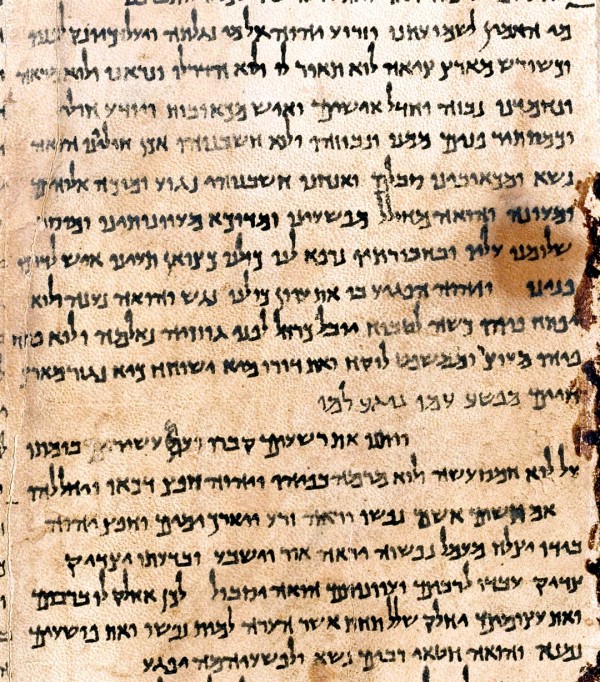 מי האמין לשמועתנו וזרוע יהוה אל מי נגלתה ויעל כיונק לפניו
וכשורש מארץ ציה לוא תואר לו ולוא הדר לו ונראנו ולוא מראה
ונחמדנו נבזה וחדל אישים ואיש מכאובות ויודע חולי
וכמסתר פנים ממנו ונבוזהו ולוא חשבנוהו אכן חוליינו הואה
נשא ומכאובינו סבלם ואנחנו חשבנוהו נגוע ומוכה אלוהים
ומעונה והואה מחולל מפשעינו ומדוכא מעוונותינו ומוסר
שלומנו עליו ובחבורתיו נרפא לנו כולנו כצואן תעינו איש לדרכו
פנינו ויהוה הפגיע בו את עוון כולנו נגש והואה נענה ולוא
יפתח פיהו כשה לטבוח יובל כרחל לפני גוזזיה נאלמה ולוא פתח
פיהו מעוצר וממשפט לוקח ואת דורו מיא ישוחח כיא נגזר מארץ
חיים מפשע עמו נוגע למו
ויתנו את רשעים קברו ועם עשירים בומתו
על לוא חמס עשה ולוא מרמה בפיהו ויהוה חפץ דכאו ויחללהו
אם תשים אשם נפשו יראה זרע ויאריך ימים וחפץ יהוה
בידו יצלח מעמל נפשוה יראה אור וישבע ובדעתו יצדיק
צדיק עבדו לרבים ועוונותם הואה יסבול לכן אחלק לו ברבים
ואת עצומים יחלק שלל תחת אשר הערה למות נפשו ואת פושעים
נמנה והואה חטאי רבים נשא ולפשעיהמה יפגע